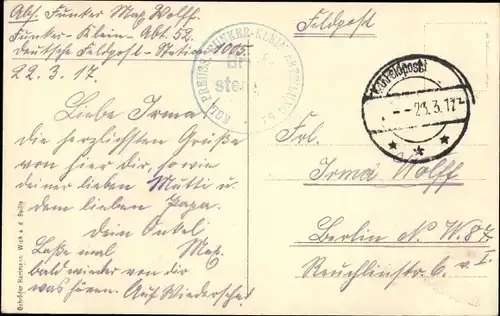 Abs. Funker Max Wolff.
Funker-Klein-Abt. 52.
Deutsche Feldpost-Station 1005.
22.3.17.
Liebe Irma!
die herzlichsten Grüße
von hier Dir, sowie
deiner lieben Mutti u.
dem lieben Papa.
Dein Onkel
Max.
Laße mal
bald wieder von dir
was hören. Auf Wiedersehen
Feldpost
KGL. PREUSS. FUNKER-KLEIN-ABTEILUNG
Br
ste
K.D.Feldpost
23.3.17
Frl.
Irma Wolff
Berlin N.W. 87
Reuchlinstr. 6. v. I.
Gebrüder Hartmann, Wich a. d. Seille